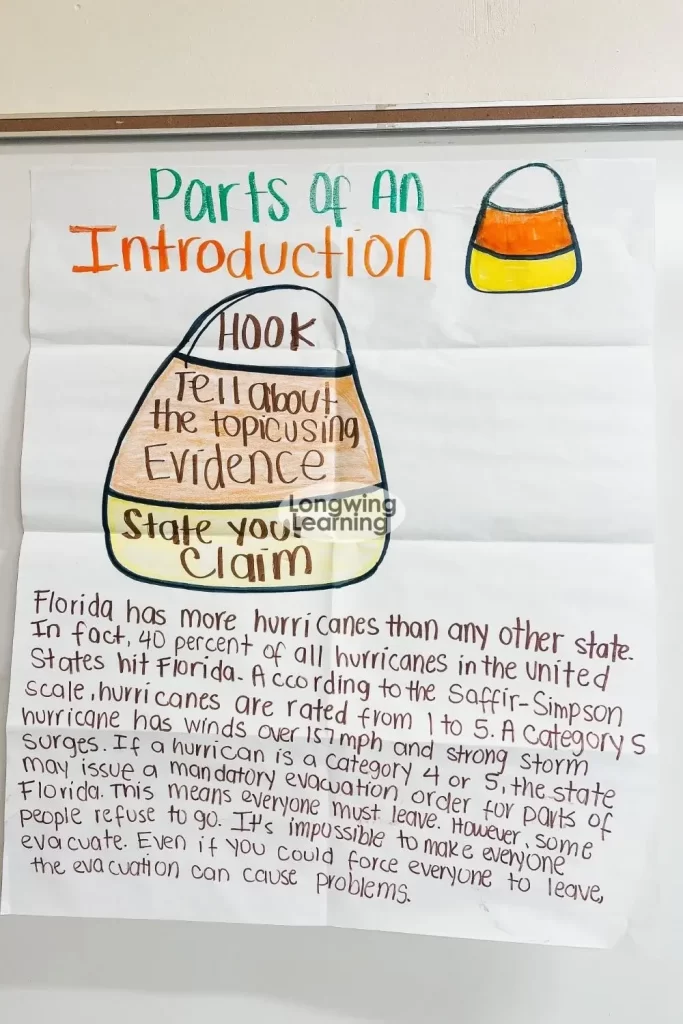 Parts of An
Introduction
HOOK
Tell about
the topic using
Evidence
State your
Claim
Longwing
Learning
Florida has more hurricanes than any other state.
In fact, 40 percent of all hurricanes in the United
States hit Florida. According to the Saffir-Simpson
scale, hurricanes are rated from 1 to 5. A category 5
hurricane has winds over 157 mph and strong storm
surges. If a hurrican is a category 4 or 5, the state
may issue a mandatory evacuation order for parts of
Florida. This means everyone must leave. However, some
people refuse to go. It's impossible to make everyone
evacuate. Even if you could force everyone to leave,
the evacuation can cause problems.